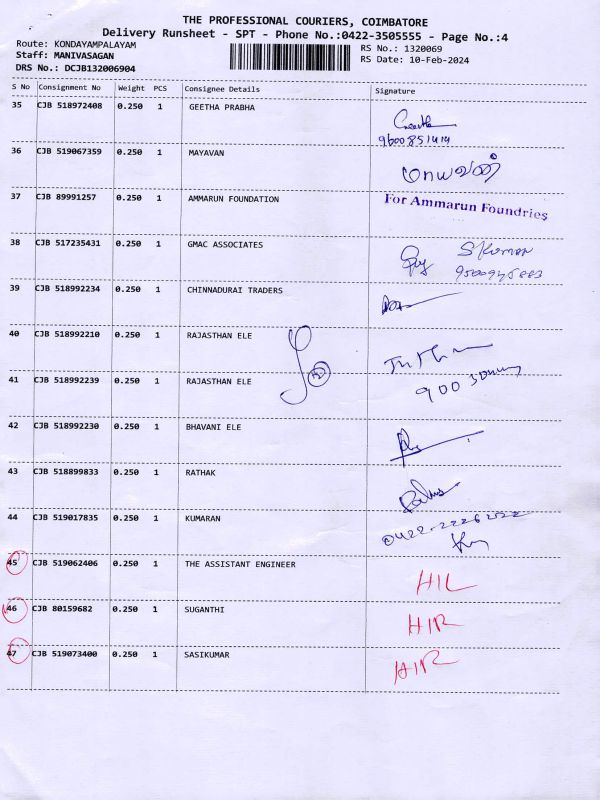 THE PROFESSIONAL COURIERS, COIMBATORE
Delivery Runsheet - SPT - Phone No.:0422-3505555 - Page No.:4
Route: KONDAYAMPALAYAM RS No.: 1320069
Staff: MANIVASAGAN RS Date: 10-Feb-2024
DRS No.: DCJB132006904
S No Consignment No Weight PCS Consignee Details Signature
35 CJB 518972408 0.250 1 GEETHA PRABHA
Geetha
9600851414
36 CJB 519067359 0.250 1 MAYAVAN
மாயவன்
37 CJB 89991257 0.250 1 AMMARUN FOUNDATION For Ammarun Foundries
38 CJB 517235431 0.250 1 GMAC ASSOCIATES S Kumar
39 CJB 518992234 0.250 1 CHINNADURAI TRADERS
40 CJB 518992210 0.250 1 RAJASTHAN ELE
41 CJB 518992239 0.250 1 RAJASTHAN ELE
42 CJB 518992230 0.250 1 BHAVANI ELE
43 CJB 518899833 0.250 1 RATHAK
44 CJB 519017835 0.250 1 KUMARAN
45 CJB 519062406 0.250 1 THE ASSISTANT ENGINEER HIL
46 CJB 80159682 0.250 1 SUGANTHI HIR
47 CJB 519073400 0.250 1 SASIKUMAR HIR